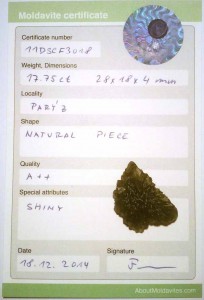 Moldavite certificate
Certificate number
11D3CF3018
Weight, Dimensions
17.75ct 28x18x4 mm
Locality
Shape
NATURAL PIECE
Quality
A++
Special attributes
SHINY
Date
Signature
18.12.2014
AboutMoldavites.com